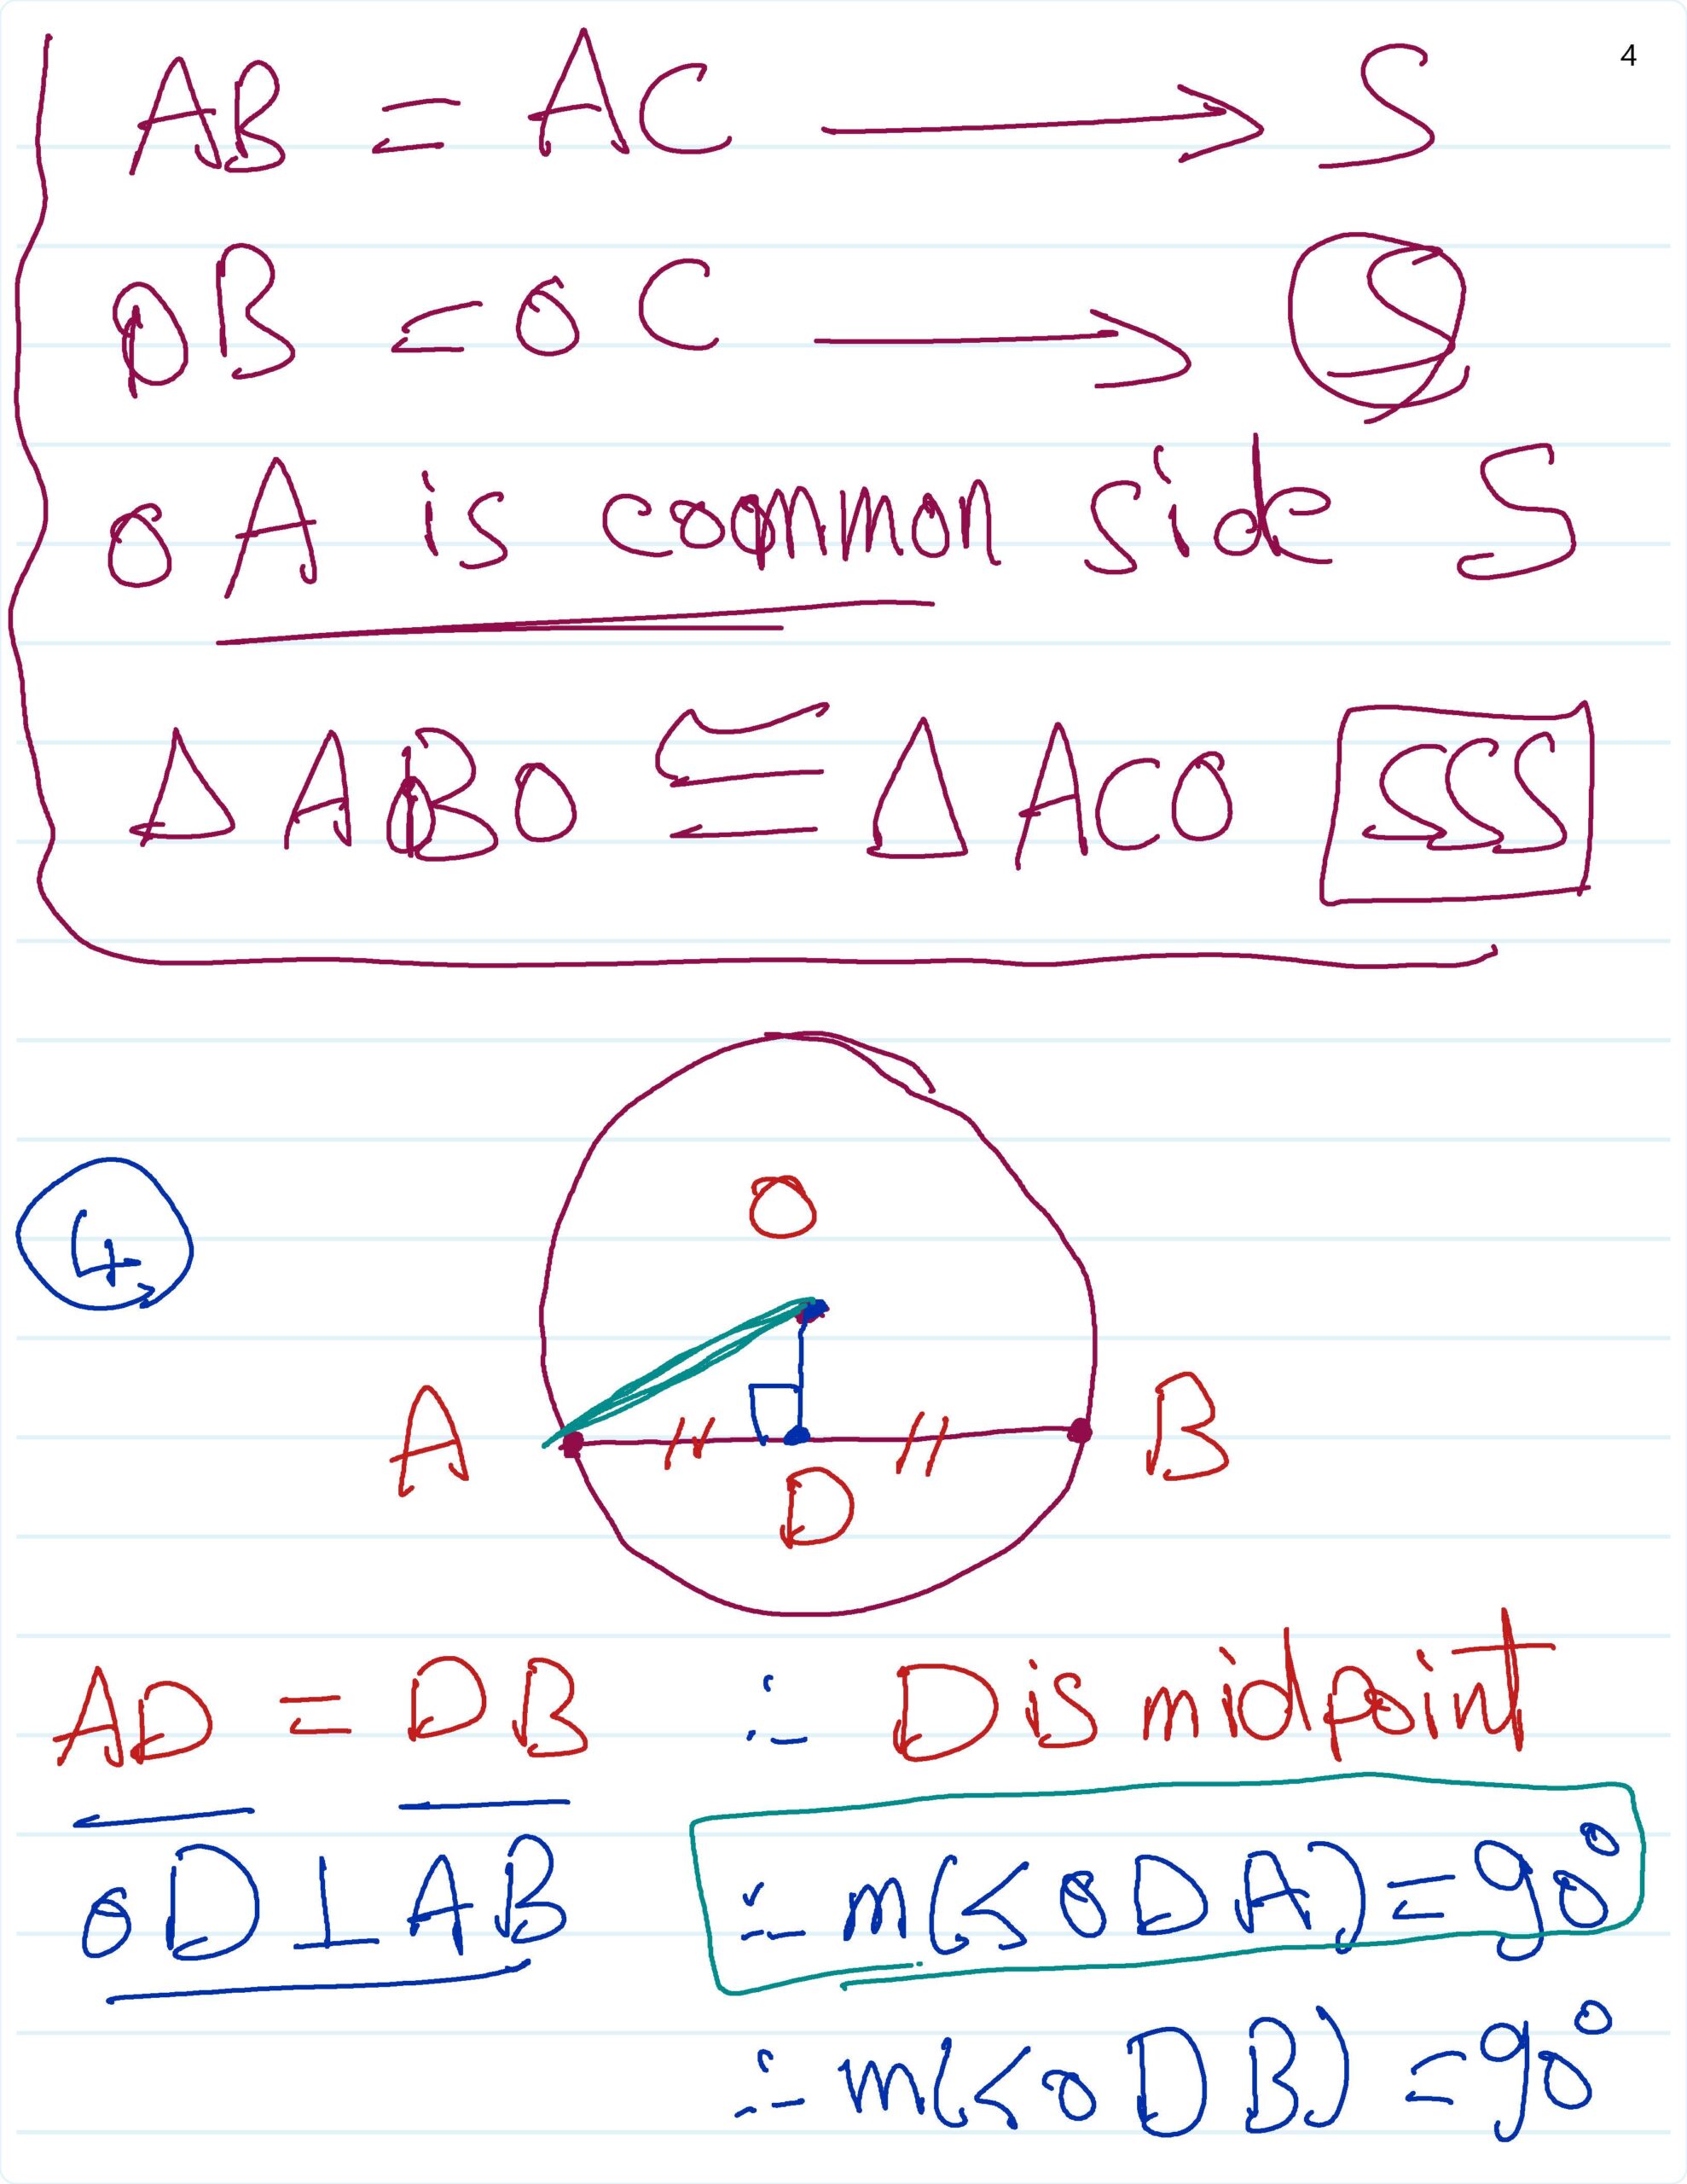 4
AB = AC → S
OB = OC → S
OA is common side S
Δ ABO ≅ Δ ACO SSS
4
O
A B
D
AD = DB ∴ D is midpoint
OD ⊥ AB ∴ m(<ODA) = 90°
∴ m(<ODB) = 90°